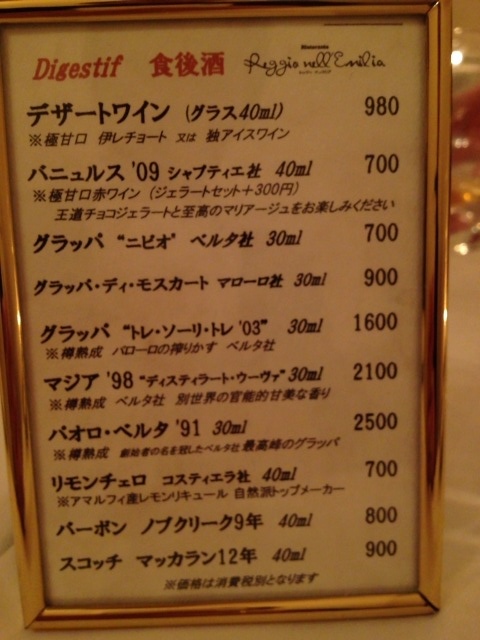 Digestif 食後酒 Ristorante Reggio nell'Emilia
デザートワイン (グラス40ml) 980
※極甘口 伊レチョート 又は 独アイスワイン
バニュルス '09 シャプティエ社 40ml 700
※極甘口赤ワイン (ジェラートセット+300円)
王道チョコジェラートと至高のマリアージュをお楽しみください
グラッパ "ニビオ" ベルタ社 30ml 700
グラッパ・ディ・モスカート マローロ社 30ml 900
グラッパ "トレ・ソーリ・トレ '03" 30ml 1600
※樽熟成 バローロの搾りかす ベルタ社
マジア '98 "ディスティラート・ウーヴァ" 30ml 2100
※樽熟成 ベルタ社 別世界の官能的甘美な香り
パオロ・ベルタ '91 30ml 2500
※樽熟成 創始者の名を冠したベルタ社最高峰のグラッパ
リモンチェロ コスティエラ社 40ml 700
※アマルフィ産レモンリキュール 自然派トップメーカー
バーボン ノブクリーク9年 40ml 800
スコッチ マッカラン12年 40ml 900
※価格は消費税別となります